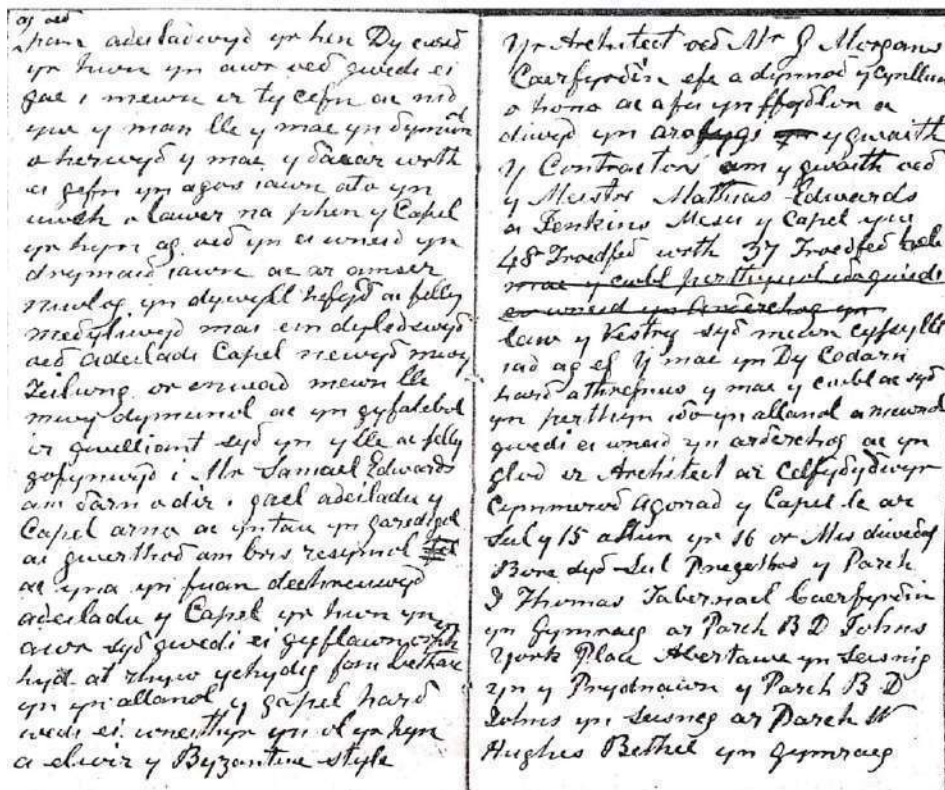 ag oed
pan adeiladwyd yr hen Dy cwrd
yr hwn yn awr oed gwedi ei
gae i mewn ir ty cefn ac nid
yw y man lle y mae yn dymunol
o herwyd y mae y daear wrth
ei gefn yn agos iawn ato yn
uwch o lawer na phen y Capel
yr hyn ag oed yn ei wneid yn
drymaid iawn ac ar amser
niwlog yn dywyll hefyd ac felly
medyliwyd mai ein dyledswyd
oed adeiladi Capel newyd mwy
Teilwng or enwad mewn lle
mwy dymunol ac yn gyfatebol
ir gwelliant syd yn y lle ac felly
gofynwyd i Mr Samuel Edwards
am darn o dir i gael adeiladu y
Capel arno ac yntau yn garedigol
ai gwerthod am bris resymol
ac yna yn fuan dechreuwyd
adeiladu y Capel yr hwn yn
awr syd gwedi ei gyflawni
hyd at rhyw ychydig fan bethau
yn yr allanol y gapel hard
wedi ei wneithyr yn ol yr hyn
a elwir y Byzantine style
Yr Architect oed Mr J Morgans
Caerfyrdin efe a dynnod y cynllun
o hono ac a fu yn ffydlon a
diwyd yn arolygs y gwaith
y Contractors am y gwaith oed
y Meistri Mathias Edwards
a Jenkins Mesu y Capel yw
48 Troedfed wrth 37 Troedfed
mae y cwbl perthynol ido gwedi
ei wneid yn Arderchog yn
law y Vestry syd mewn cysyllt
iad ag ef Y mae yn Dy Cadarn
hard a threfnus y mae y cwbl ac syd
yn perthyn ido yn allanol a mewnol
gwedi ei wneid yn arderchog ac yn
glod ir Architect ar Celfydydwyr
Cymmerod Agorad y Capel le ar
Sul y 15 a Llun yr 16 or Mis diwedaf
Bore dyd Sul Pregethod y Parch
J Thomas Tabernacl Caerfyrdin
yn Gymraeg ar Parch B D Johns
York Place Abertawe yn Seisnig
Yn y Prydnawn y Parch B D
Johns yn Seisneg ar Parch W
Hughes Bethel yn Gymraeg